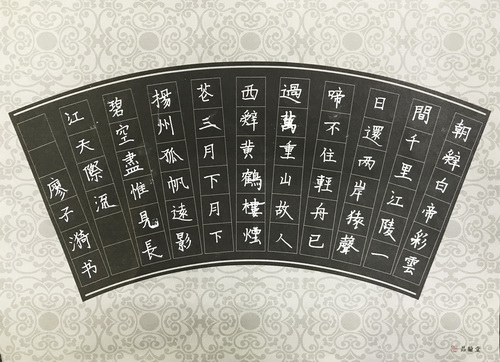 朝辤白帝彩雲
間千里江陵一
日還两岸猿聲
啼不住輕舟已
過萬重山故人
西辤黄鶴樓煙
花三月下月下
揚州孤帆遠影
碧空盡惟見長
江天際流
廖子漪书